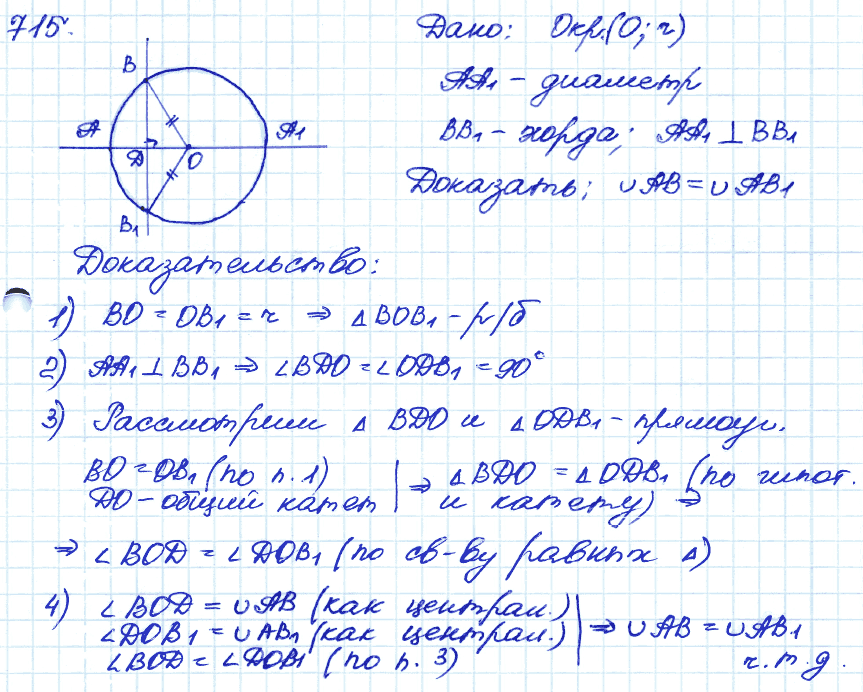 715.
Дано: Окр.(O; r)
AA₁ - диаметр
BB₁ - хорда; AA₁ ⊥ BB₁
Доказать: ∪AB = ∪AB₁
B
A
A₁
D
O
B₁
Доказательство:
1) BO = OB₁ = r ⇒ △BOB₁ - р/б
2) AA₁ ⊥ BB₁ ⇒ ∠BDO = ∠ODB₁ = 90°
3) Рассмотрим △ BDO и △ODB₁ - прямоуг.
BO = OB₁ (по п. 1) | ⇒ △BDO = △ODB₁ (по гипот.
DO - общий катет | и катету) ⇒
⇒ ∠BOD = ∠DOB₁ (по св-ву равных △)
4) ∠BOD = ∪AB (как централ.)
∠DOB₁ = ∪AB₁ (как централ.) | ⇒ ∪AB = ∪AB₁
∠BOD = ∠DOB₁ (по п. 3) ч.т.д.